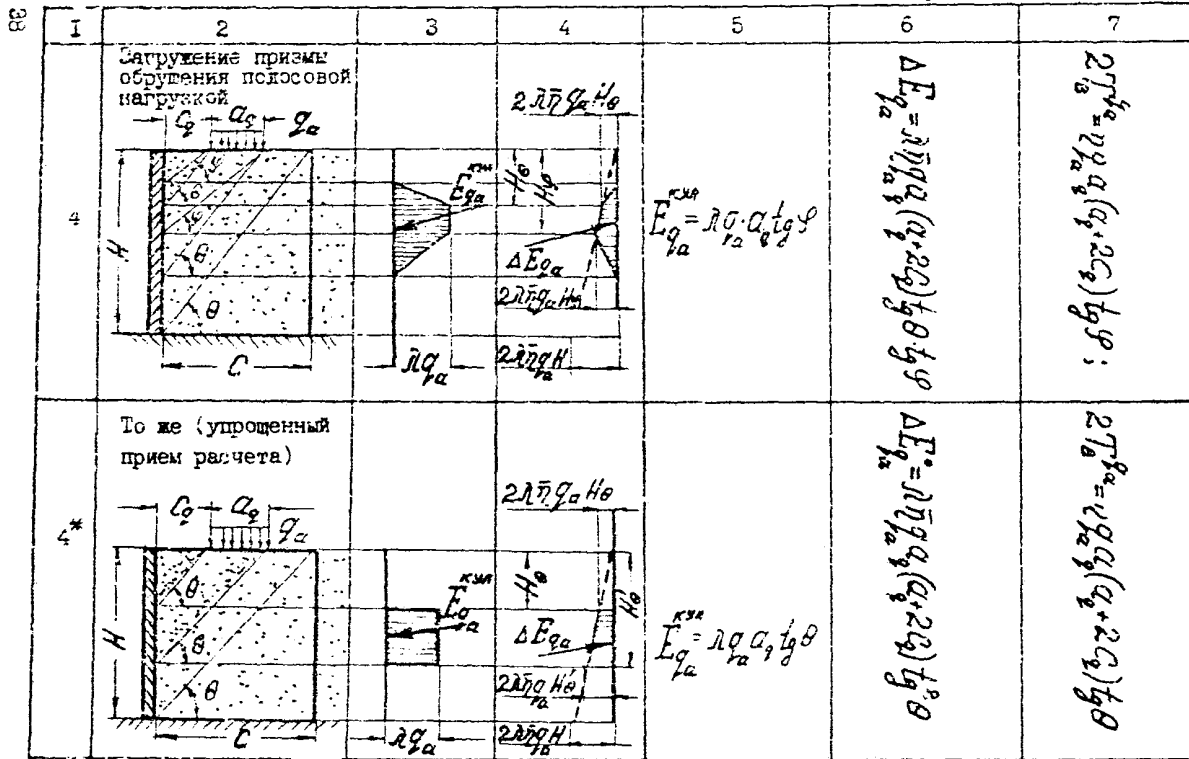 38
I 2 3 4 5 6 7
4
Загружение призмы
обрушения полосовой
нагрузкой
C_q a_q q_a
φ
θ
φ
θ
θ
H
C
E_{q_a}^{кул}
λq_a
2λn̄q_aH_θ
H_θ
H_φ
ΔE_{q_a}
2λn̄q_aH
E_{q_a}^{кул} = λq_a·a_q tgφ
ΔE_{q_a} = λn̄q_a a_q(a_q+2C_q)tgθ·tgφ
2T_в^{q_a} = ηq_a a_q(a_q+2C_q)tgφ;
4*
То же (упрощенный
прием расчета)
C_q a_q q_a
θ
θ
θ
H
C
E_{q_a}^{кул}
λq_a
2λn̄q_aH_θ
H_θ
H'_θ
ΔE_{q_a}
2λn̄q_aH'_θ
2λn̄q_aH
E_{q_a}^{кул} = λq_a a_q tgθ
ΔE°_{q_a} = λn̄q_a a_q(a_q+2C_q)tg²θ
2T_в^{q_a} = ηq_a a_q(a_q+2C_q)tgθ